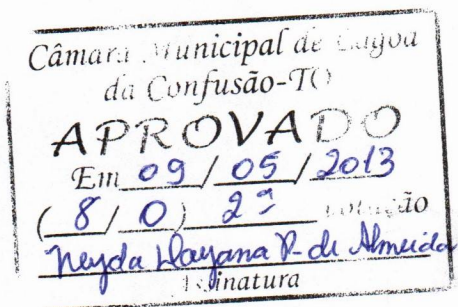 Câmara Municipal de Lagoa
da Confusão-TO
APROVADO
Em 09 / 05 / 2013
( 8 / 0 ) 2ª votação
Neyda Dayana P. de Almeida
Assinatura